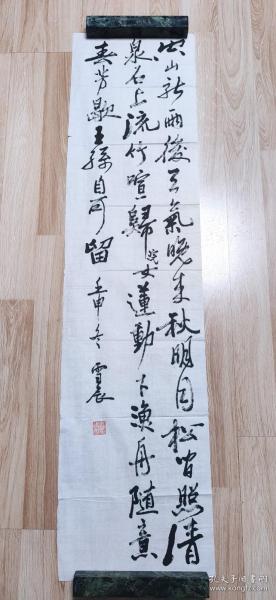 空山新雨後天氣晚来秋明月松间照清
泉石上流竹喧歸浣女蓮動下漁舟随意
春芳歇王孫自可留 壬申冬 雪宸
孔夫子旧书网